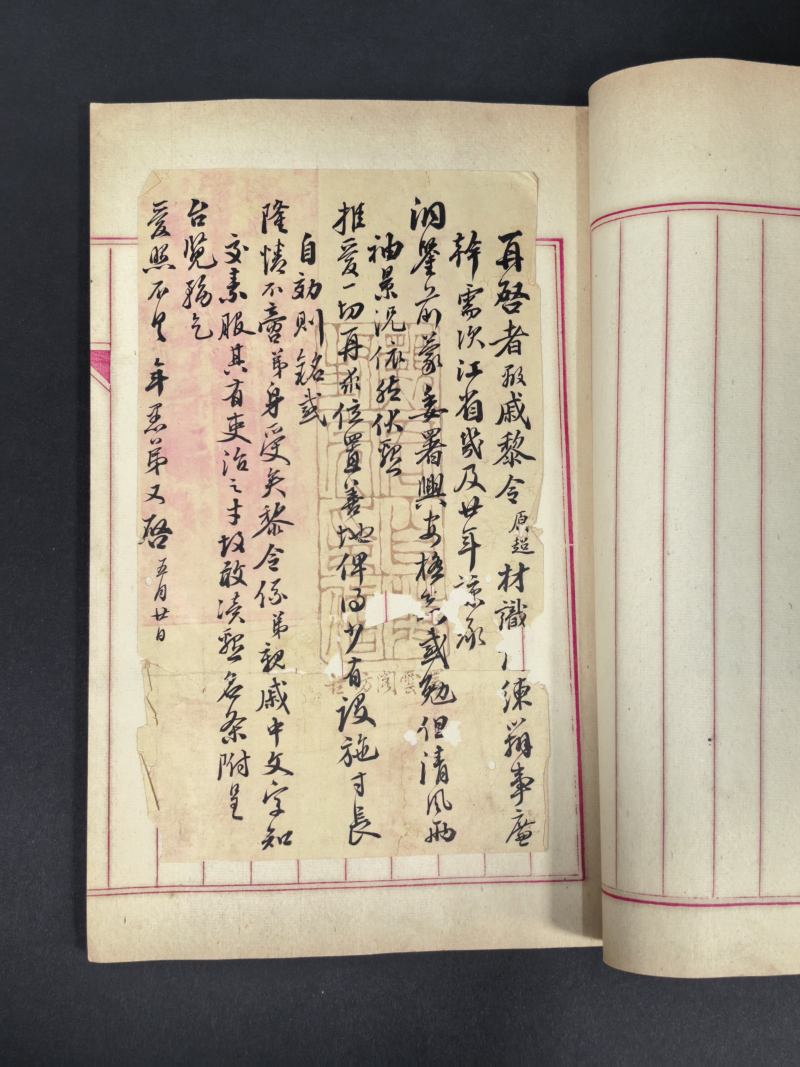 再啓者敝戚黎令原超材識練辦事廉
幹需次江省幾及廿年諒承
洞鑒前蒙委署興安極知感勉但清風兩
袖景況依然伏懇
推愛一切再求位置善地俾得少有設施寸長
自効則銘感
隆情不啻弟身受矣黎令係弟親戚中文字知
交素服其有吏治之才故敢瀆懇名條附呈
台覽務乞
愛照不具 年愚弟又啓 五月廿日
雲閣